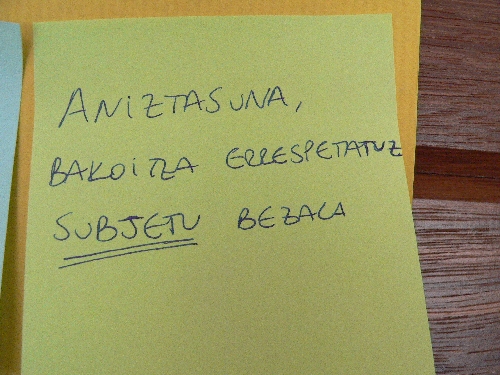 ANIZTASUNA,
BAKOITZA ERRESPETATUZ
SUBJETU BEZALA